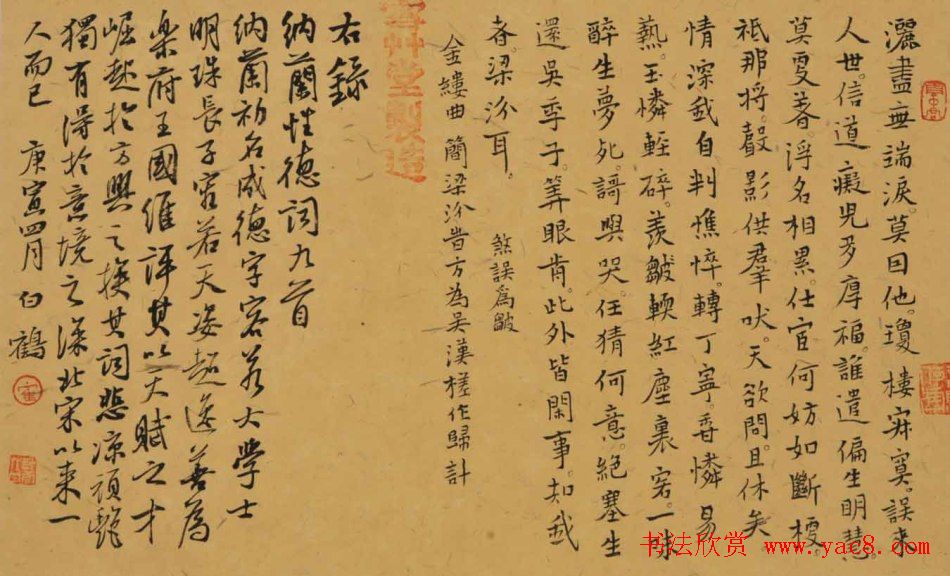 灑盡無端淚。莫因他。瓊樓寂寞。誤來
人世。信道癡兒多厚福。誰遣偏生明慧。
莫更著。浮名相累。仕宦何妨如斷梗。
祇那將。聲影供羣吠。天欲問。且休矣
情深我自判憔悴。轉丁寧。香憐易
爇。玉憐輕碎。羡皺輭紅塵裏客。一味
醉生夢死。謌與哭。任猜何意。絕塞生
還吳季子。筭眼肯。此外皆閑事。知我
者。梁汾耳。
煞誤爲皺
金縷曲 簡梁汾肯方為吳漢槎作歸計
右錄
納蘭性德詞九首
納蘭初名成德字容若大學士
明珠長子容若天姿超逸善為
樂府王國維評其以天賦之才
崛起於方興之族其詞悲凉頑艷
獨有得於意境之深北宋以來一
人而已 庚寅四月 白鶴
草堂製造
书法欣赏 www.yac8.com